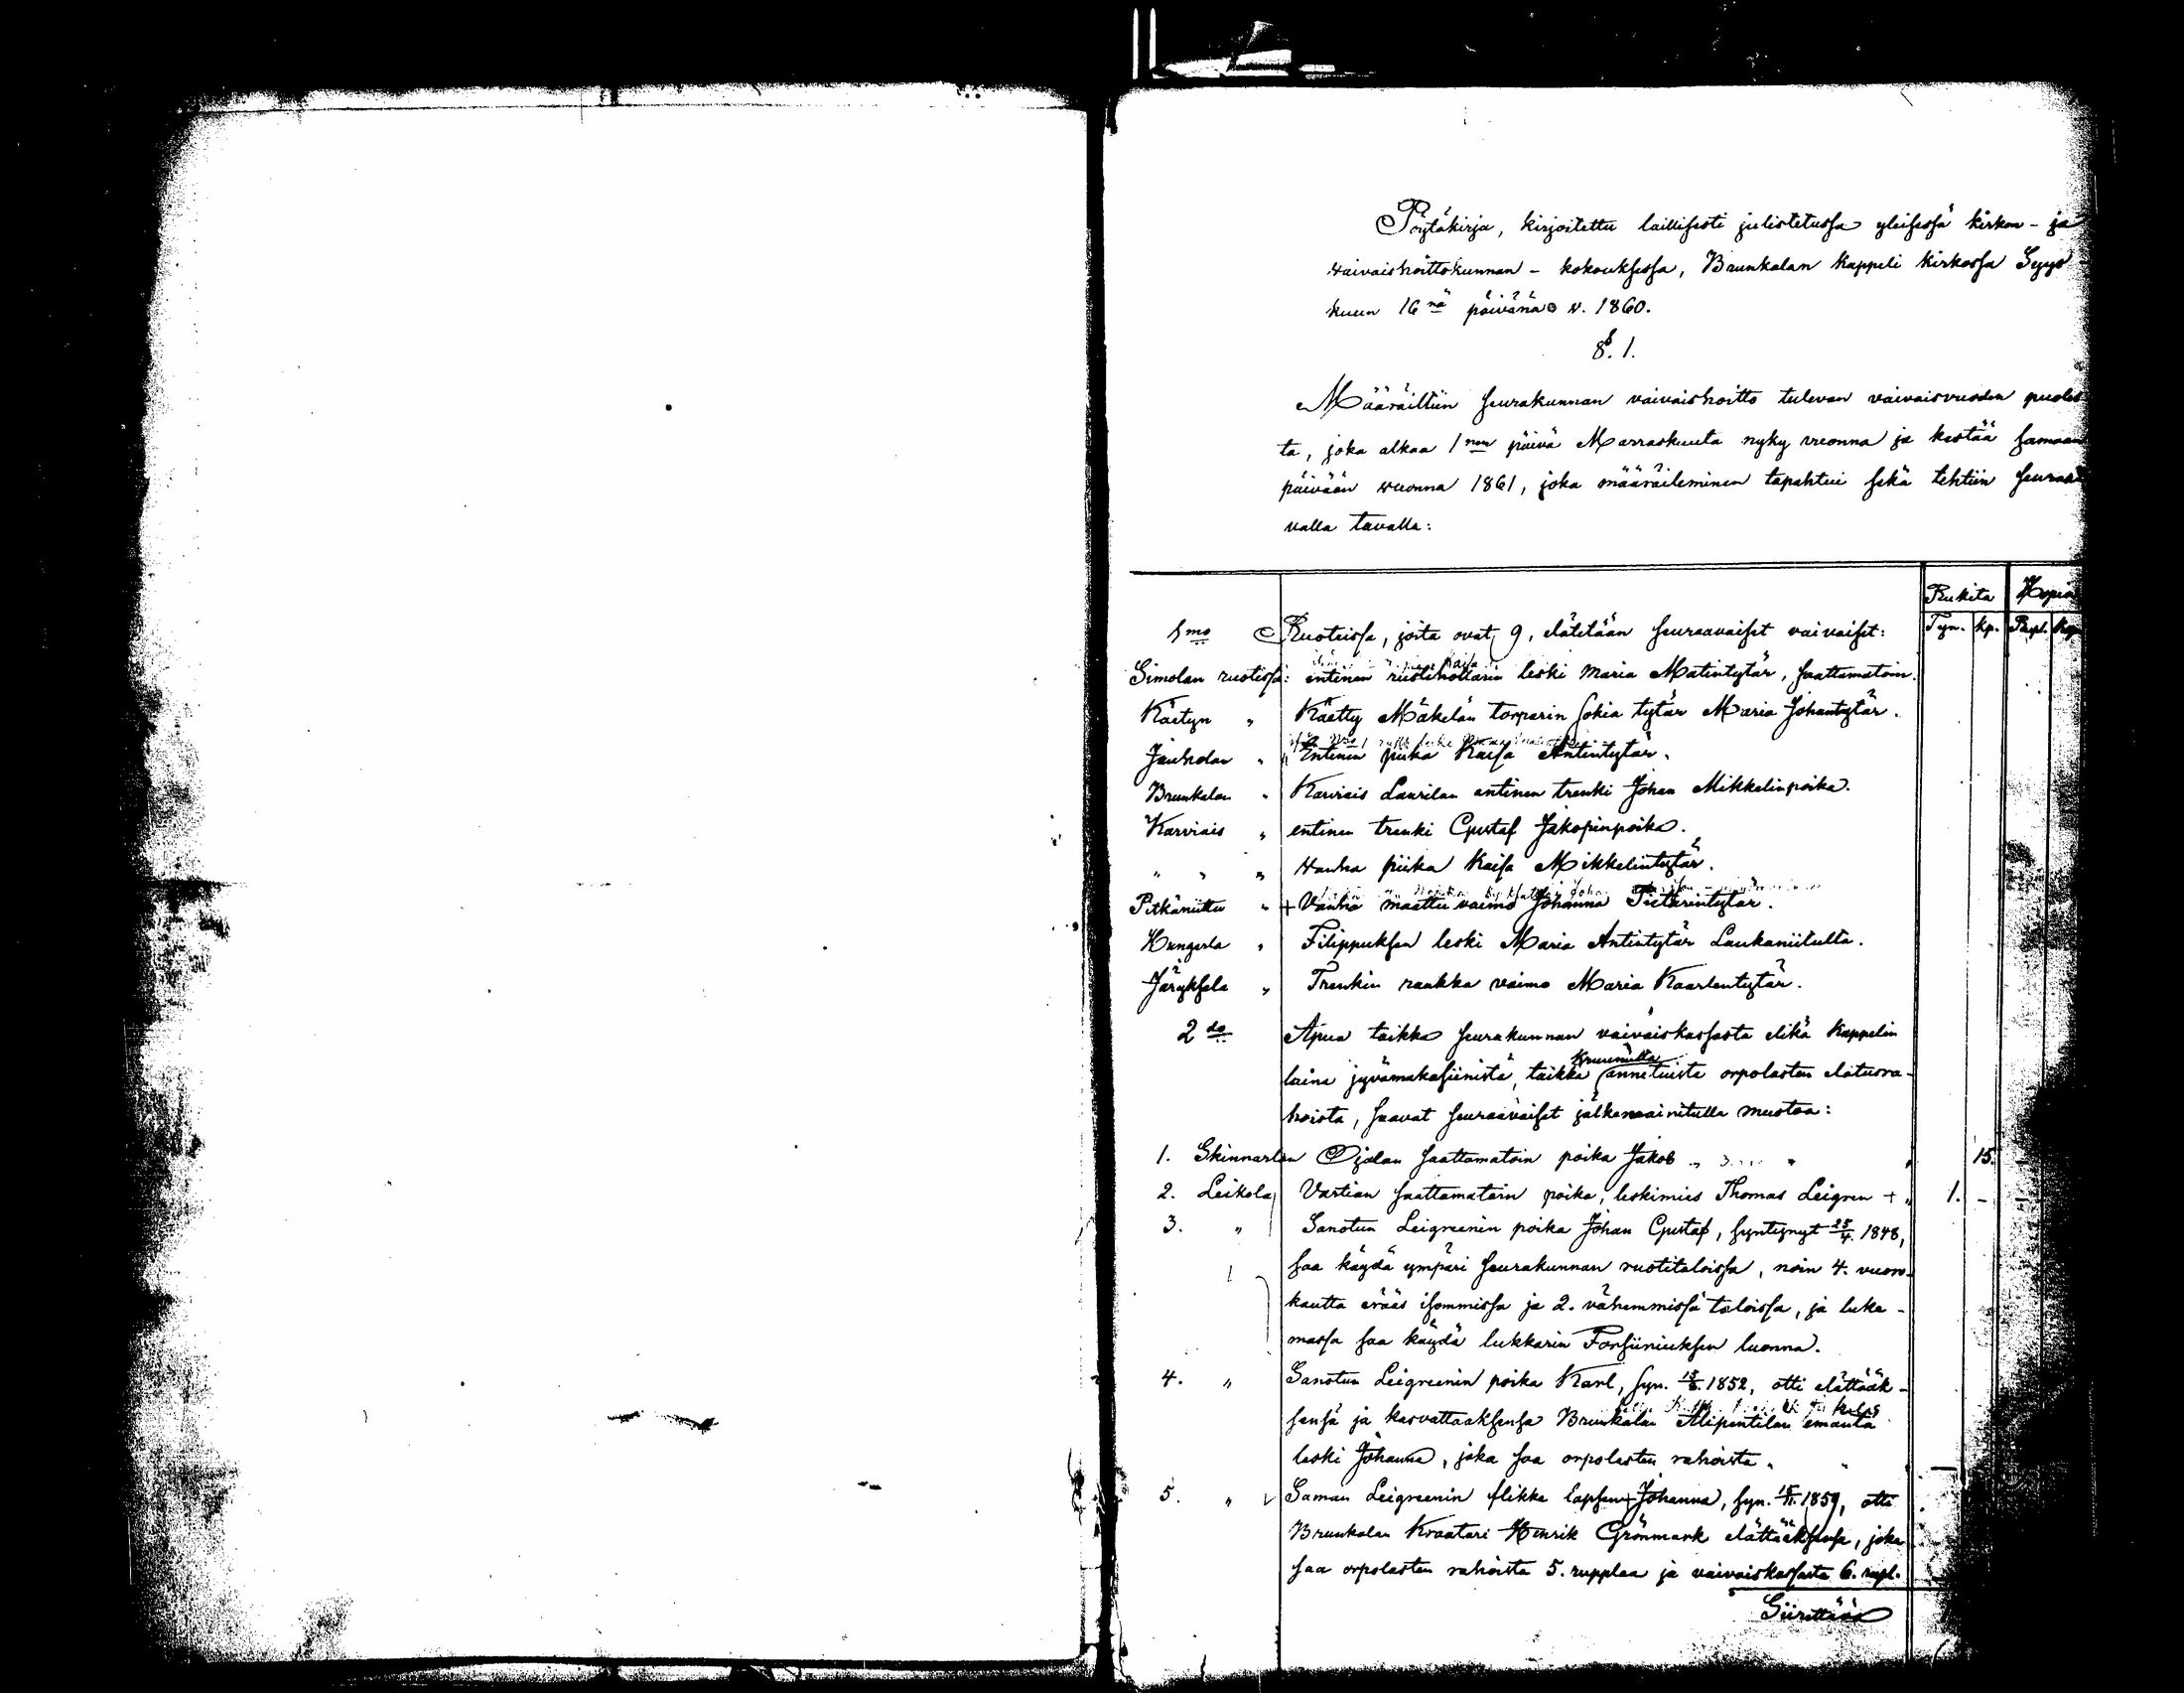 Pöytäkirja, kirjoitettu laillisesti julistetussa yleisessä kirkon- ja
waivaishoittokunnan - kokouksessa, Brunkalan kappeli kirkossa Syys-
kuun 16nä päivänä v. 1860.
§. 1.
Määräiltiin seurakunnan vaivaishoitto tulevan vaivaisvuoden puoles-
ta, joka alkaa 1nen päivä Marraskuuta nyky vuonna ja kestää samaan
päivään wuonna 1861, joka määräileminen tapahtui sekä tehtiin seuraa-
valla tavalla:
Rukita Hopia
Tyn. kp. Rupl. Kop.
1mo Ruoteissa, joita ovat 9, elätetään seuraavaiset vaivaiset:
Simolan ruotissa: entinen ruotihottarin leski Maria Matintytär, saattamatoin.
Käetyn „ Käetty Mäkelän torparin sokia tytär Maria Johantytär.
Jauholan „ Entinen piika Kaisa Antintytär.
Brunkalan „ Karviais Laurilan entinen trenki Johan Mikkelinpoika.
Karviais „ entinen trenki Gustaf Jakopinpoika.
„ „ „ wanha piika Kaisa Mikkelintytär.
Pitkäniittu „ + Vanha maattu vaimo Johanna Pietarintytär.
Hungerla „ Filippuksen leski Maria Antintytär Laukaniitulta.
Järyksela „ Trenkin raukka vaimo Maria Kaarlentytär.
2do Apua taikka seurakunnan vaivaiskassasta elikä kappelin
Kruunulta
laina jyvämakasiinista, taikka annetuista orpolasten elatusra-
hoista, saavat seuraavaiset jälkenaainitulla muotoa:
1. Skinnarlan Ojalan saattamatoin poika Jakob „ „ „ 15.
2. Leikola Vartian saattamatoin poika, leskimies Thomas Leigren + „ 1. -
3. „ Sanotun Leigreenin poika Johan Gustaf, syntynyt 25/4. 1848,
saa käydä ympäri seurakunnan ruotitaloissa, noin 4. vuoro-
kautta erääs isommissa ja 2. vähemmissä taloissa, ja luke-
massa saa käydä lukkarin Forsiiniuksen luonna.
4. „ Sanotun Leigreenin poika Karl, syn. 1852, otti elättääk-
sensä ja kasvattaaksensa Brunkalan Alipentilan emäntä
leski Johanna, joka saa orpolasten rahoista „ „
5. „ Saman Leigreenin flikka lapsen + Johanna, syn. 1859, otti
Brunkalan Kraatari Henrik Grönmark elättääksensä, joka
saa orpolasten rahoista 5. rupplaa ja vaivaiskassasta 6. rupl.
Siirettää